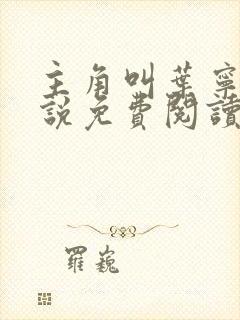 主角叫葉寧
說免費閱讀
羅巍